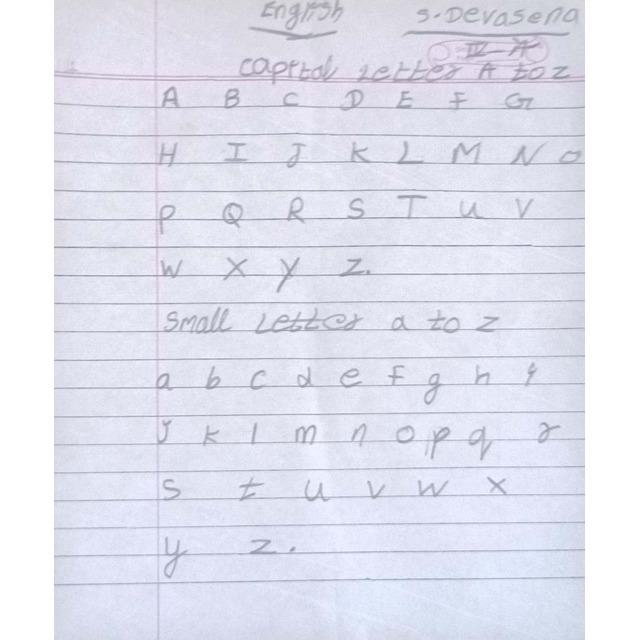 English S. Devasena
IV-A
Capital Letter A to Z
A B C D E F G
H I J K L M N O
P Q R S T U V
W X Y Z.
Small Letter a to z
a b c d e f g h i
j k l m n o p q r
s t u v w x
y z.